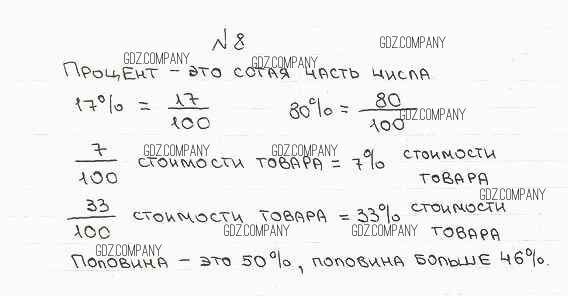 № 8
GDZ.COMPANY
GDZ.COMPANY GDZ.COMPANY
Процент – это сотая часть числа
17% = 17/100 80% = 80/100
GDZ.COMPANY
GDZ.COMPANY GDZ.COMPANY
7/100 стоимости товара = 7% стоимости
товара
GDZ.COMPANY
33/100 стоимости товара = 33% стоимости
товара
GDZ.COMPANY GDZ.COMPANY
GDZ.COMPANY
Половина – это 50%, половина больше 46%.